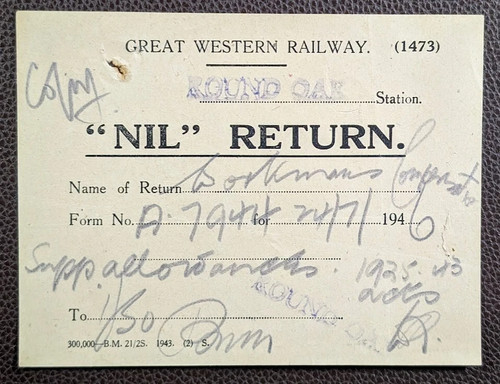 GREAT WESTERN RAILWAY. (1473)
Copy.
ROUND OAK Station.
"NIL" RETURN.
Name of Return Workmans Compensation
Form No. A. 7944 for 24/7/ 1946
Supp allowances. 1925. 43
acts
ROUND OAK
To
300,000—B.M. 21/2S. 1943. (2) S.